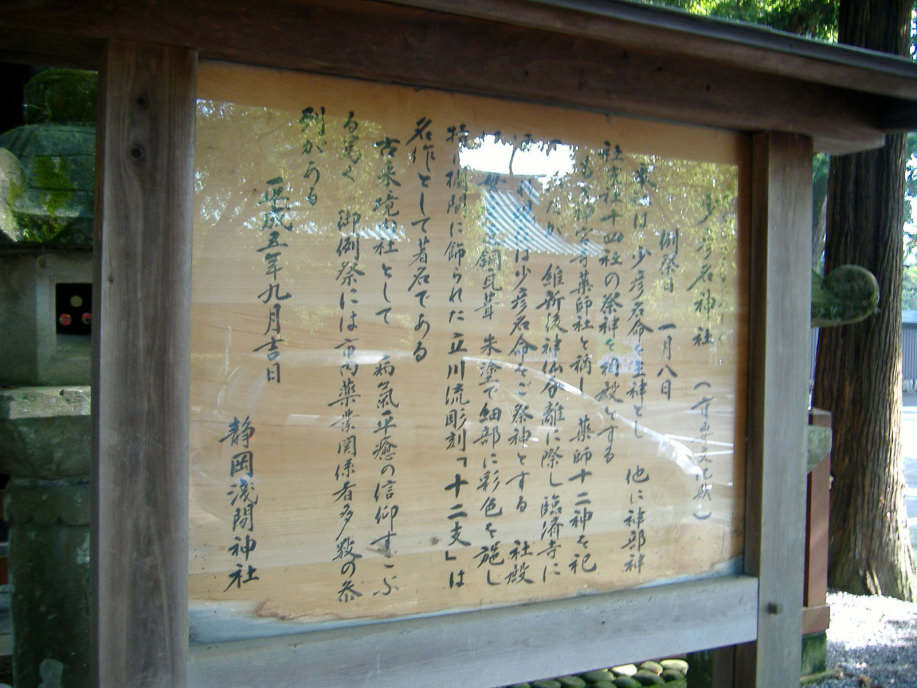 少彦名神社 (重要文化財)
例祭日 一月八日
本来は少彦名命を主神とし 他に神部神
社末社十四社の祭神を相殿とする
神宮寺薬師社と称し 薬師十二神を祀
が 維新後神仏分離に際し臨済寺に
は少彦名命をご祭神とする 社殿
銅瓦葺 朱塗で細部に彩色を施し
特に欄間に飾られた立川流彫刻「十二支」は
名作として著名である
古来境内社として 病氣平癒の信仰すこぶ
る篤く 御例祭には市内薬業関係者多数の参
列がある
平成五年九月吉日
静岡浅間神社